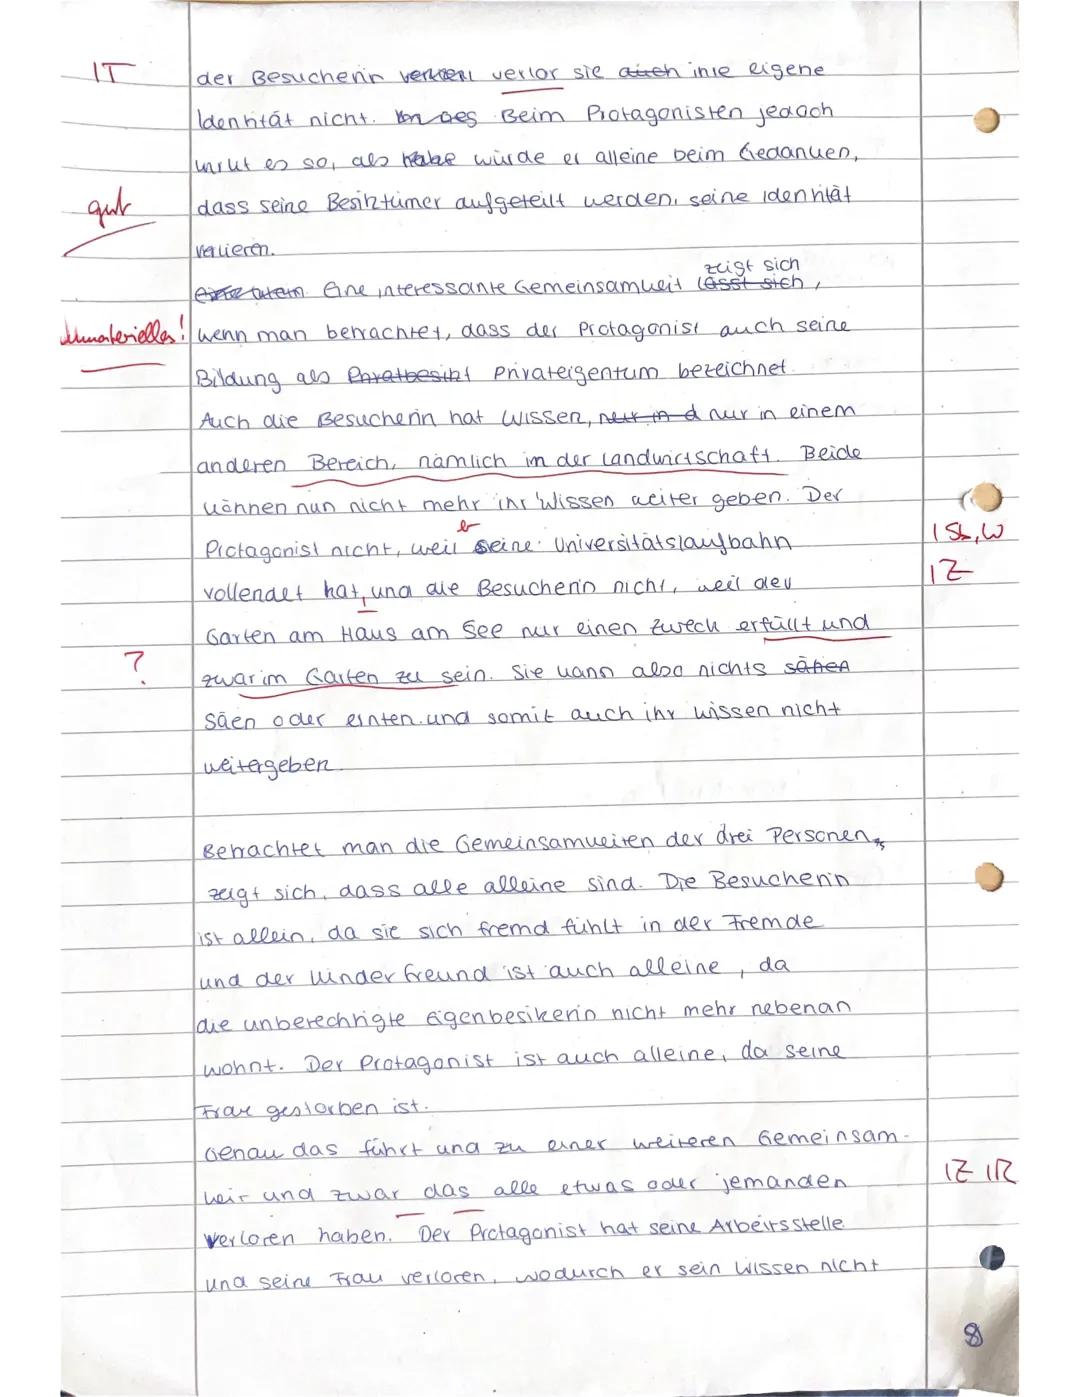 IT
der Besucherin verlor sie auch ihre eigene
Identität nicht. Von des Beim Protagonisten jedoch
wirkt es so, als habe würde er alleine beim Gedanken,
gut
dass seine Besitztümer aufgeteilt werden, seine Identität
verlieren.
zeigt sich
Eine interessante Gemeinsamkeit lässt sich,
Immaterielles!
wenn man betrachtet, dass der Protagonist auch seine
Bildung als Privatbesitzt Privateigentum bezeichnet.
Auch die Besucherin hat Wissen, nur in d nur in einem
anderen Bereich, nämlich in der Landwirtschaft. Beide
können nun nicht mehr ihr Wissen weiter geben. Der
er
Protagonist nicht, weil seine Universitätslaufbahn
1 Sb, W
vollendet hat, und die Besucherin nicht, weil der
1Z
Garten am Haus am See nur einen zweck erfüllt und
?
zwar im Garten zu sein. Sie kann also nichts sähen
säen oder ernten und somit auch ihr wissen nicht
weitergeben.
Betrachtet man die Gemeinsamkeiten der drei Personen,
zeigt sich, dass alle alleine sind. Die Besucherin
ist allein, da sie sich fremd fühlt in der Fremde
und der Kinderfreund ist auch alleine, da
die unberechtigte Eigenbesitzerin nicht mehr nebenan
wohnt. Der Protagonist ist auch alleine, da seine
Frau gestorben ist.
Genau das führt und zu einer weiteren Gemeinsam-
keit und zwar das alle etwas oder jemanden
1Z 1R
verloren haben. Der Protagonist hat seine Arbeitsstelle
und seine Frau verloren, wodurch er sein Wissen nicht
8